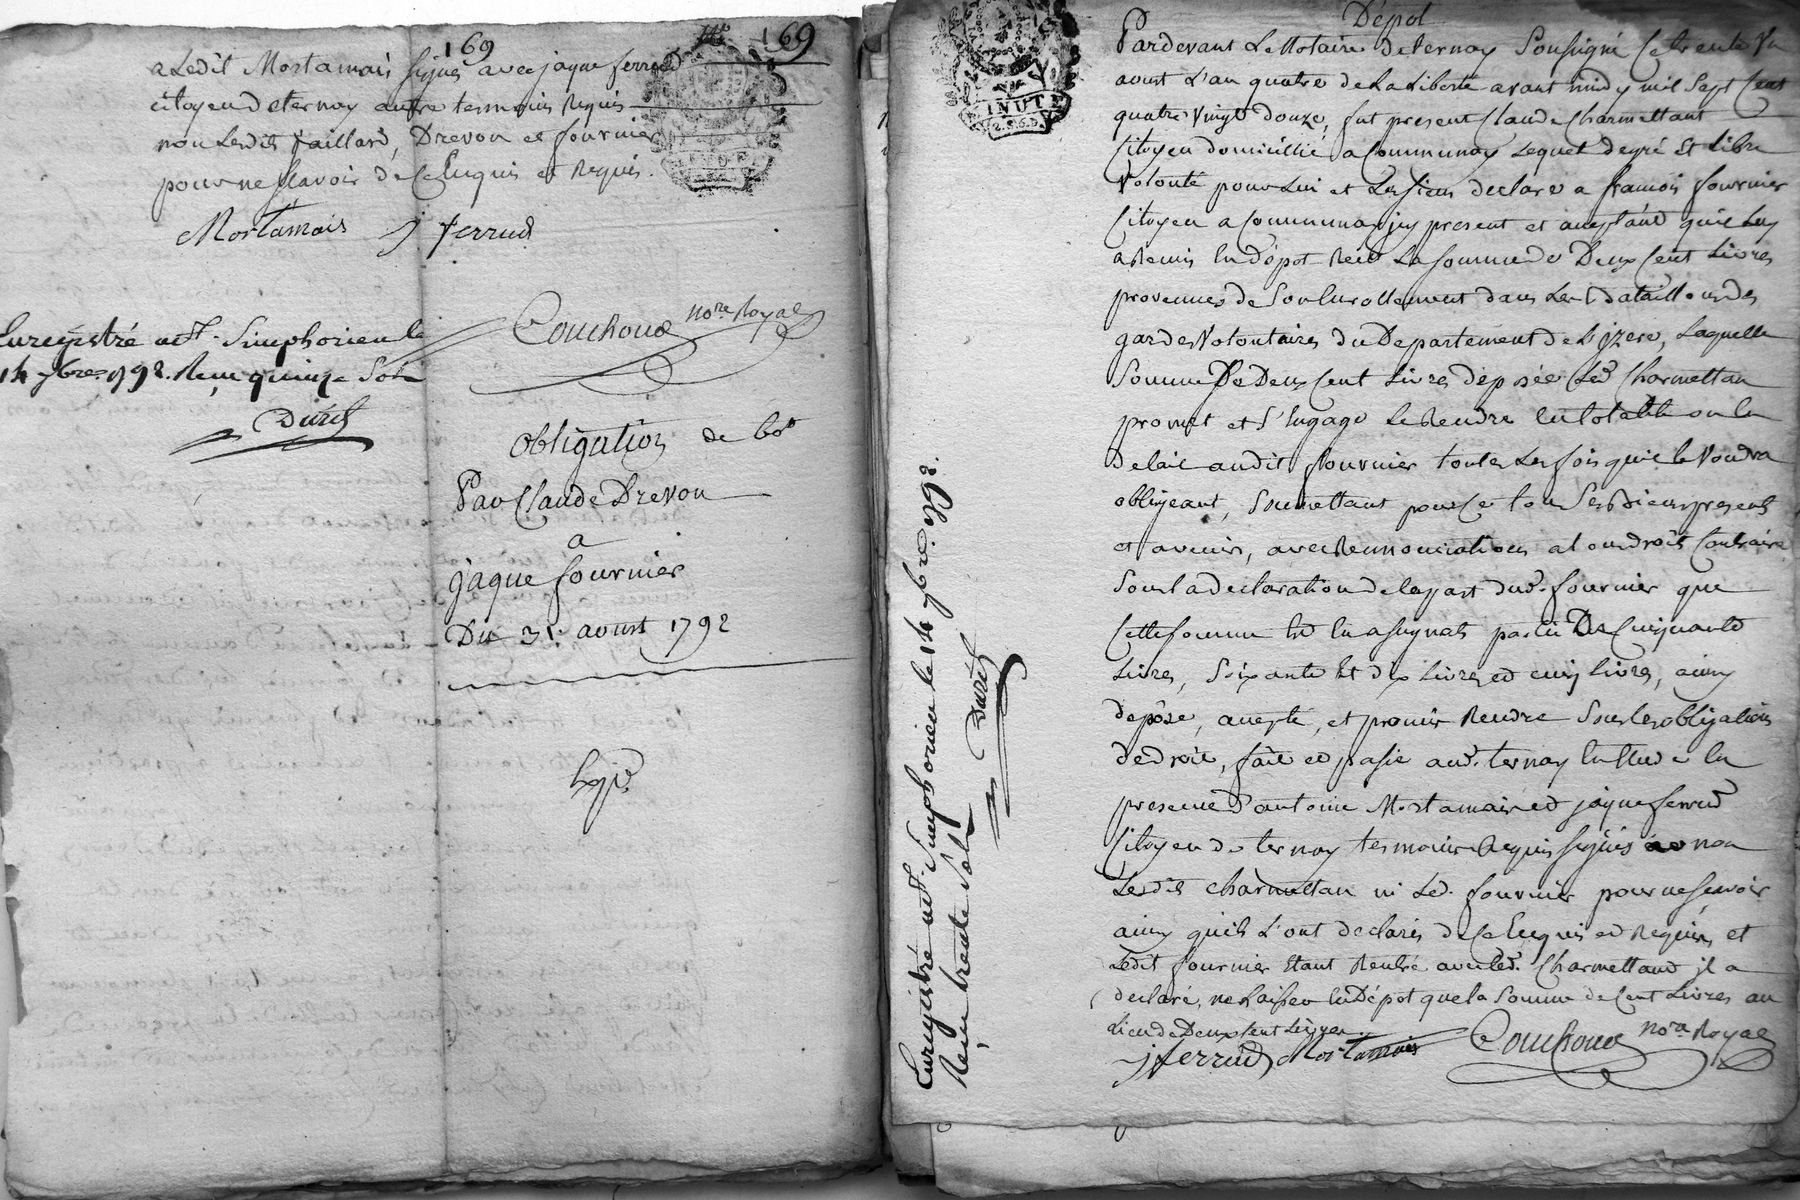 169
169
a Ledit Mortamais signés avec jaque ferrud
citoyen de ternay autre temoins Requis
non Lesdits Paillard, Drevon et fournier
pour ne sçavoir de ce Enquis et Requis.
Mortamais j ferrud
Couchoud nore Royal
Enregistré a St. Simphorien le
14 7bre 1792. Reçu quinze Sols
Duret
obligation de 60#
Par Claude Drevon
a
jaque fournier
Du 31. aoust 1792
Expé.
MINUTE
Dépôt
Pardevant Le Notaire de ternay Soussigné Ce trente Un
aoust L'an quatre de La Liberté avant midy mil Sept Cent
quatre Vingt douze, fut present Claude Charmettant
Citoyen domicillié a Communay Lequel de gré Et Libre
Volonté pour Lui et Les siens declare a francois fournier
Citoyen a Communay jcy present et acceptant qu'il Luy
a Remis En dépot Réel La somme de Deux Cent Livres
provenues de Son Enrollement dans Les Bataillons des
gardes Volontaires du Departement de L'jzere, Laquelle
Somme De Deux Cent Livres déposée Led. Charmettan
promet et S'Engage Le Rendre En totalité ou En
detail audit fournier toutes Les fois qu'il le Voudra
obligeant, Soumettant pour Ce tous Ses Biens presents
et avenir, avec Rennonciations a tous droits Contraire
Sous La declaration de la part dud. fournier que
Cette somme Est En assignats partie De Cinquante
Livres, Soixante Et dix Livres et cinq Livres, ainsy
deposé, accepté, et promis Rendre Sous Les obligations
de droit, fait et passé aud. ternay Etude En
presence d'antoine Mortamais et jaque ferrud
Citoyen de ternay temoins Requis signés et non
Lesdits Charmettan ni Led. fournier pour ne sçavoir
ainsy qu'ils L'ont declarés de Ce Enquis et Requis, et
Ledit fournier Etant Rentré avec Led. Charmettand jl a
declaré, ne Laisser En Dépot que la Somme de Cent Livres au
Lieu de Deux Cent Livres
j ferrud Mortamais Couchoud nore Royal
Enregistré a St. Simphorien le 14 7bre. 1792.
Reçu trente Sols
Duret